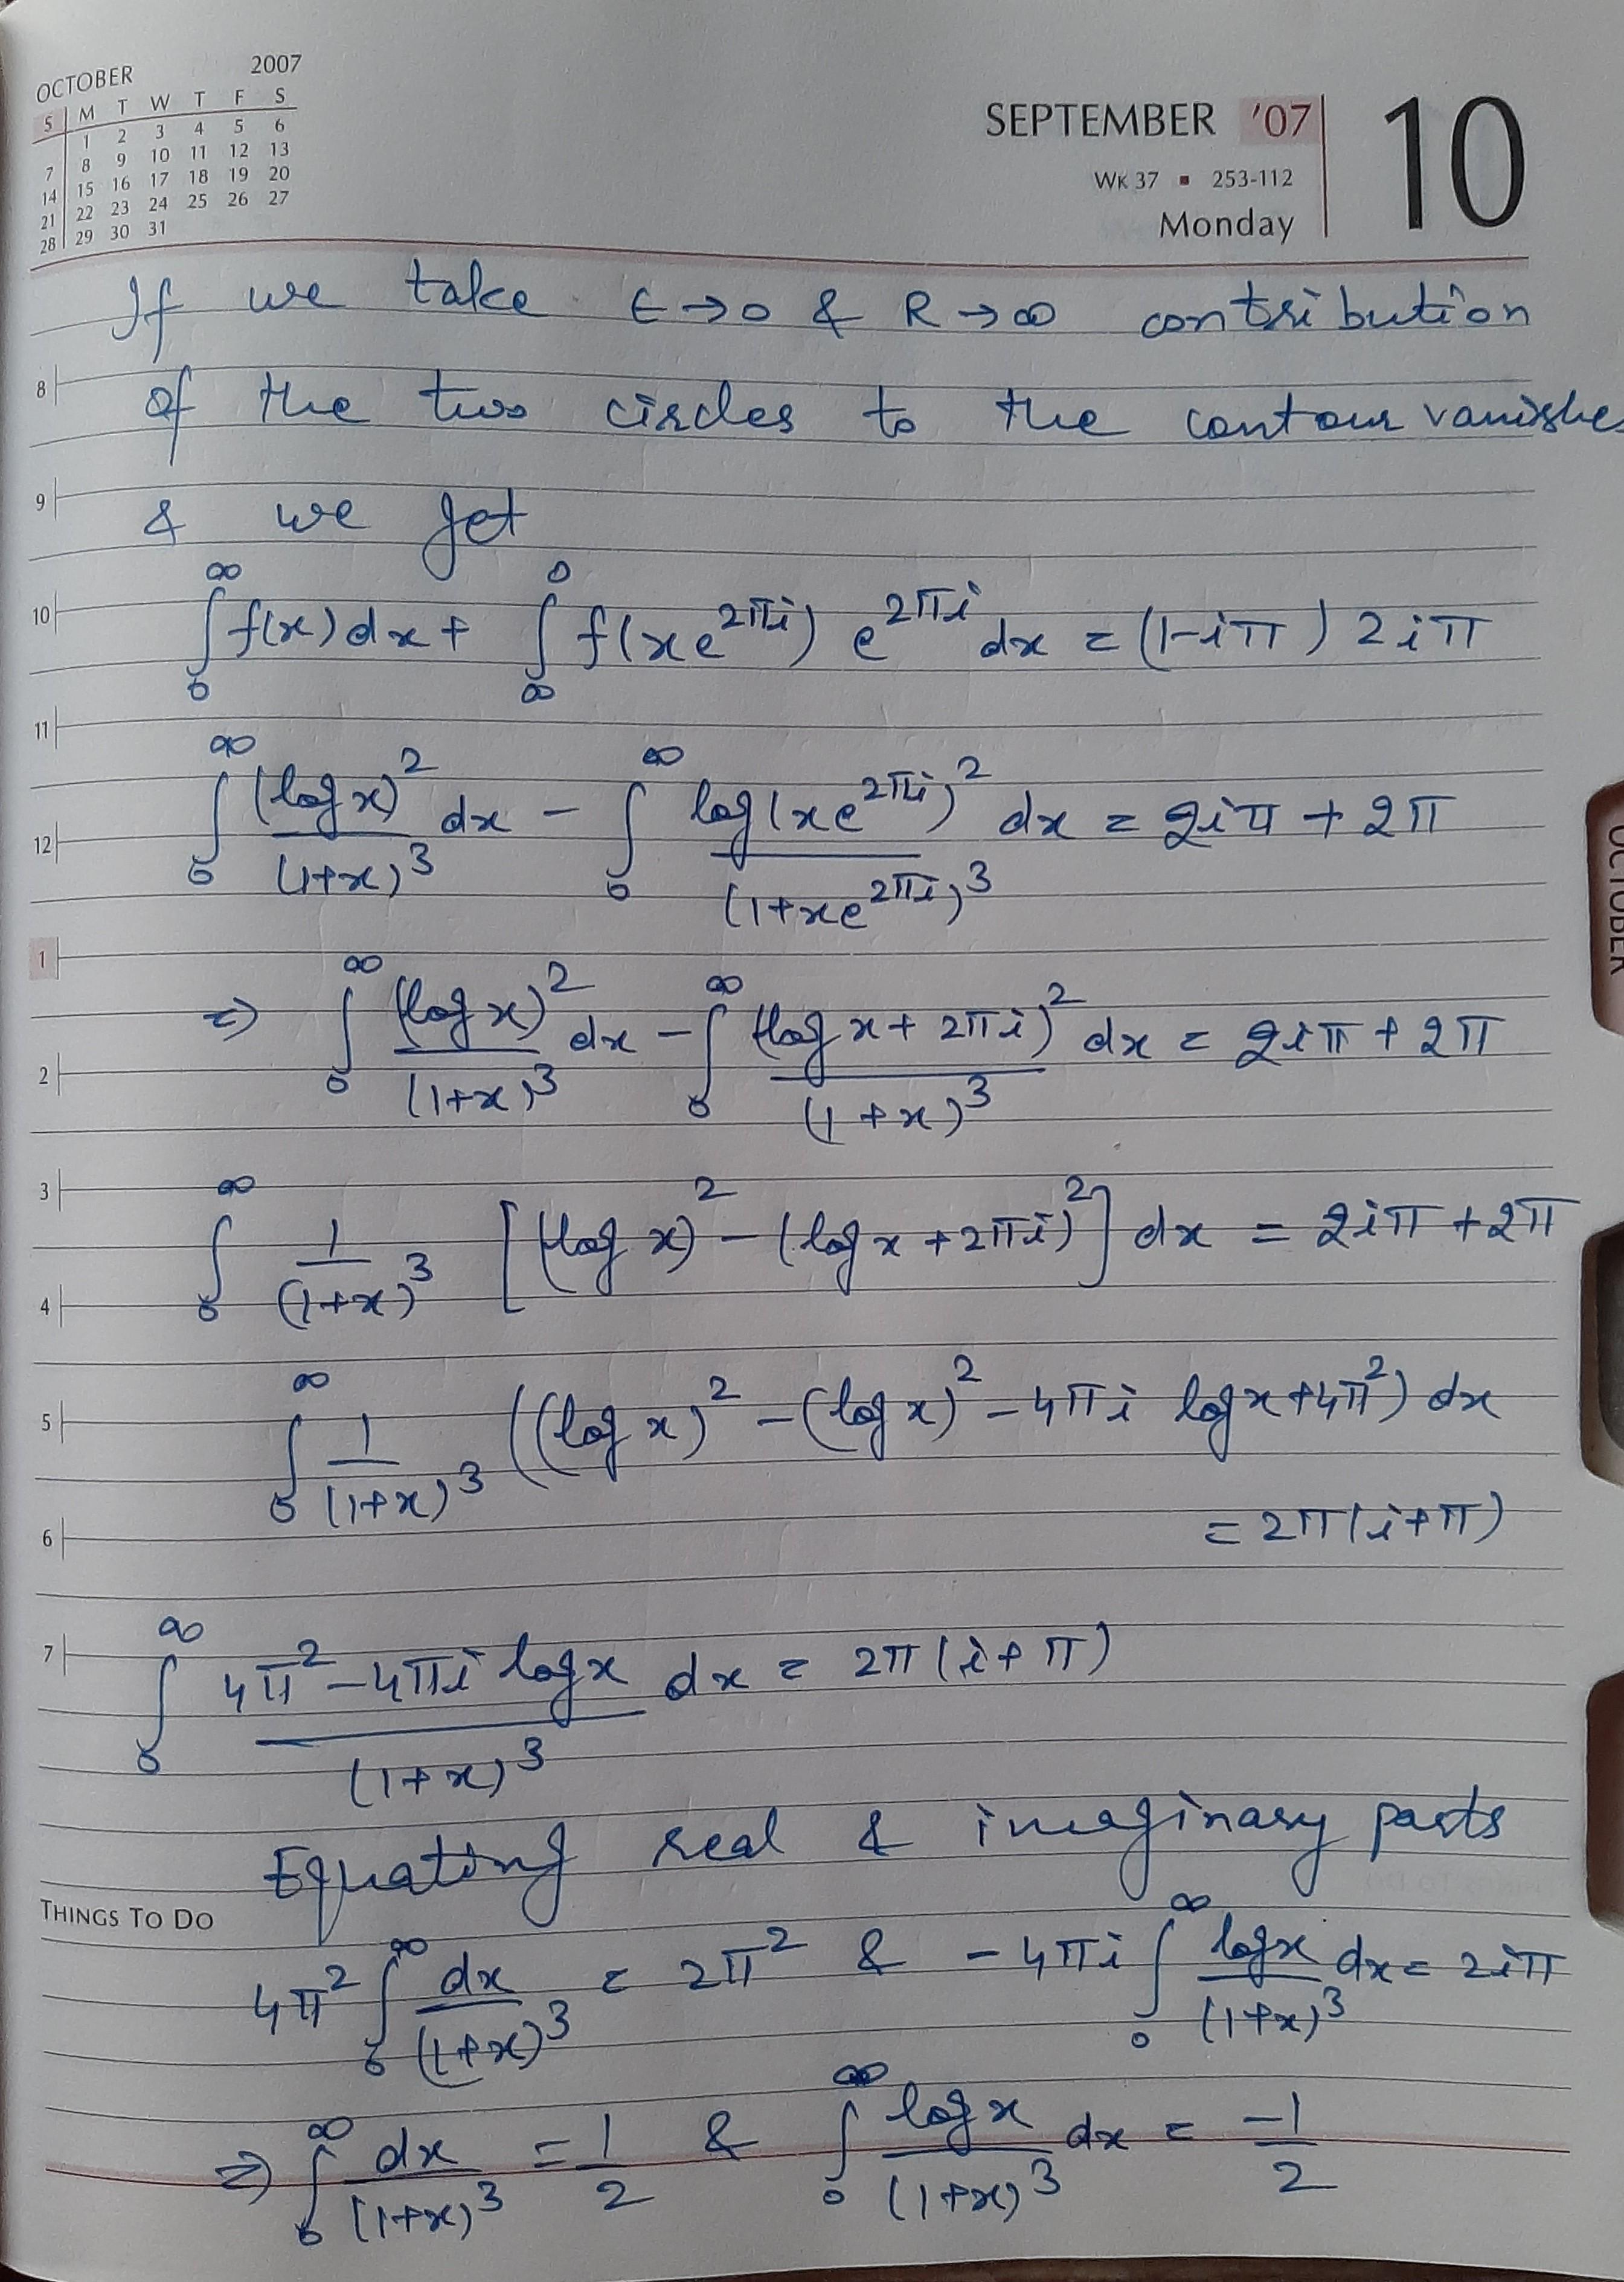 OCTOBER 2007
S M T W T F S
1 2 3 4 5 6
7 8 9 10 11 12 13
14 15 16 17 18 19 20
21 22 23 24 25 26 27
28 29 30 31
SEPTEMBER '07 10
WK 37 ▪ 253-112
Monday
If we take ε→0 & R→∞ contribution
8 of the two circles to the contour vanishe
9 & we get
10 ∫₀^∞ f(x)dx + ∫_∞^0 f(xe^{2πi}) e^{2πi} dx = (1-iπ) 2iπ
11
12 ∫₀^∞ (log x)²/(1+x)³ dx - ∫₀^∞ log(xe^{2πi})²/(1+xe^{2πi})³ dx = 2iπ + 2π
1
2 ⇒ ∫₀^∞ (log x)²/(1+x)³ dx - ∫₀^∞ (log x + 2πi)²/(1+x)³ dx = 2iπ + 2π
3
4 ∫₀^∞ 1/(1+x)³ [(log x)² - (log x + 2πi)²] dx = 2iπ + 2π
5 ∫₀^∞ 1/(1+x)³ ((log x)² - (log x)² - 4πi log x + 4π²) dx
6 = 2π(i+π)
7 ∫₀^∞ (4π² - 4πi log x)/(1+x)³ dx = 2π(i+π)
Equating real & imaginary parts
THINGS TO DO
4π² ∫₀^∞ dx/(1+x)³ = 2π² & -4πi ∫₀^∞ log x/(1+x)³ dx = 2iπ
⇒ ∫₀^∞ dx/(1+x)³ = 1/2 & ∫₀^∞ log x/(1+x)³ dx = -1/2
OCTOBER